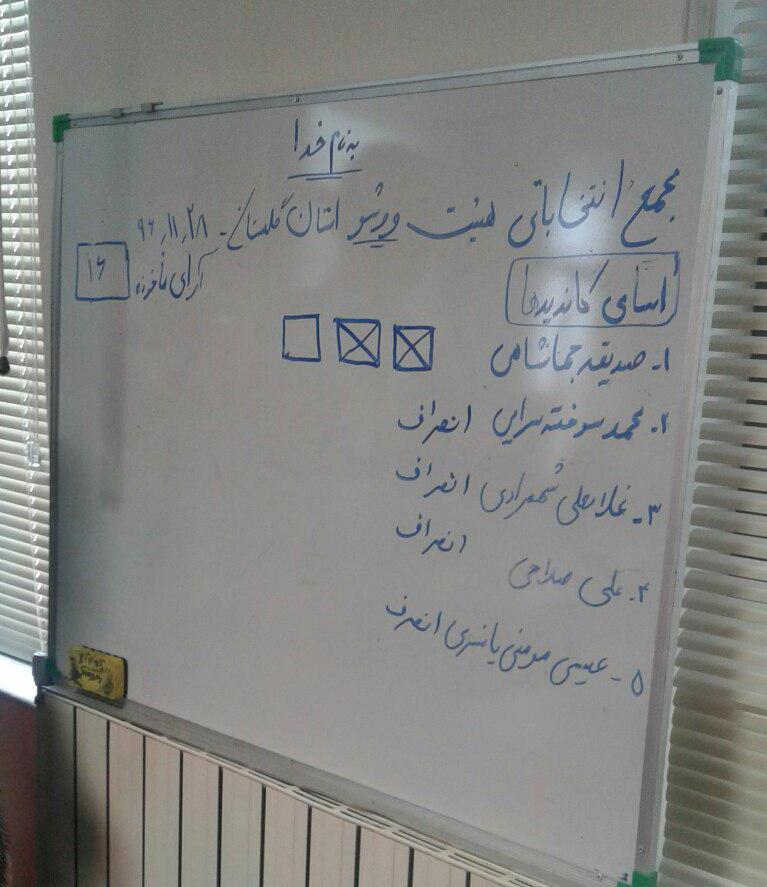 به نام خدا
مجمع انتخاباتی هیئت ووشو استان گلستان - ۹۶/۱۱/۲۸
آرای مأخوذه ۱۶
اسامی کاندیدها
۱- صدیقه جمانشامی
۲- محمد سوخته سرایی انصراف
۳- غلامعلی شهمرادی انصراف
۴- علی صداحی انصراف
۵- عیسی مومنی یانسری انصراف